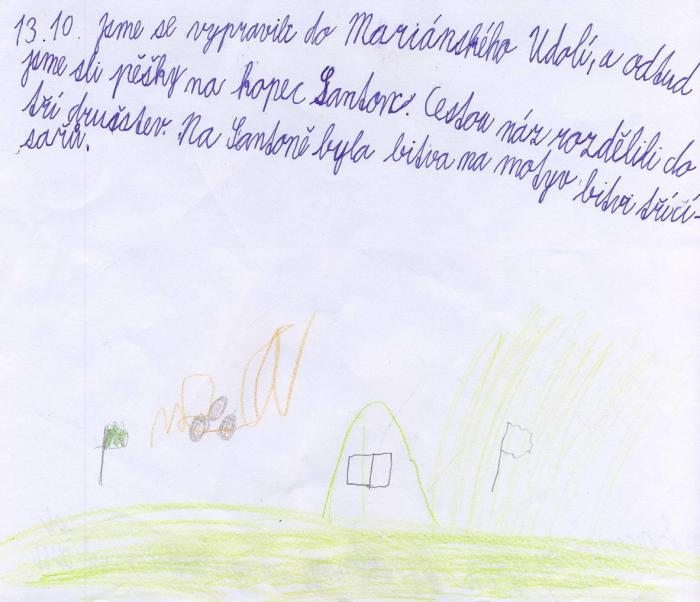 13.10. jsme se vypravili do Mariánského Udolí, a odtud
jsme šli pěšky na kopec Santon. Cestou náz rozdělili do
tří družstev. Na Santoně byla bitva na motyv bitvi třící-
sařů.